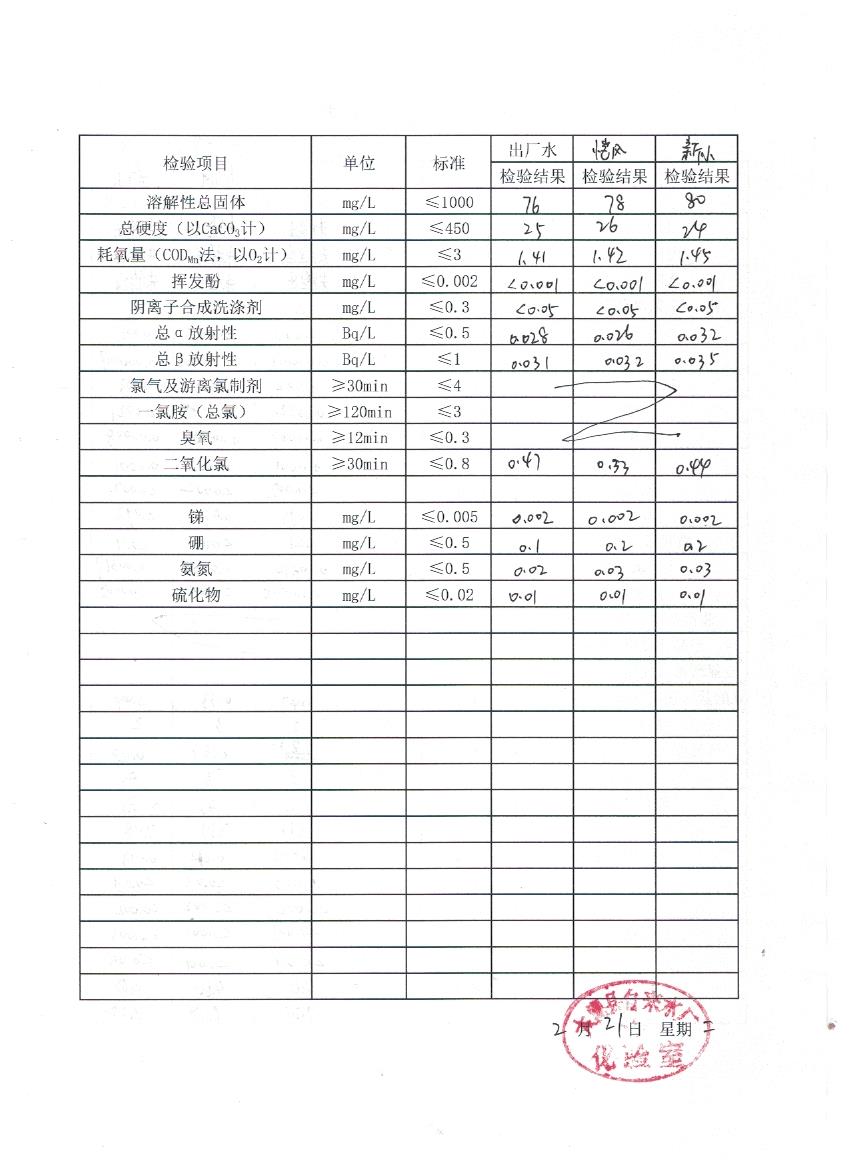 检验项目 单位 标准 出厂水 新小
检验结果 检验结果 检验结果
溶解性总固体 mg/L ≤1000 76 78 80
总硬度（以CaCO₃计） mg/L ≤450 25 26 24
耗氧量（CODMn法，以O₂计） mg/L ≤3 1.41 1.42 1.45
挥发酚 mg/L ≤0.002 <0.001 <0.001 <0.001
阴离子合成洗涤剂 mg/L ≤0.3 <0.05 <0.05 <0.05
总α放射性 Bq/L ≤0.5 0.028 0.026 0.032
总β放射性 Bq/L ≤1 0.031 0.032 0.035
氯气及游离氯制剂 ≥30min ≤4
一氯胺（总氯） ≥120min ≤3
臭氧 ≥12min ≤0.3
二氧化氯 ≥30min ≤0.8 0.47 0.33 0.44
锑 mg/L ≤0.005 0.002 0.002 0.002
硼 mg/L ≤0.5 0.1 0.2 0.2
氨氮 mg/L ≤0.5 0.02 0.03 0.03
硫化物 mg/L ≤0.02 0.01 0.01 0.01
县自来水厂
2月21日 星期二
化验室